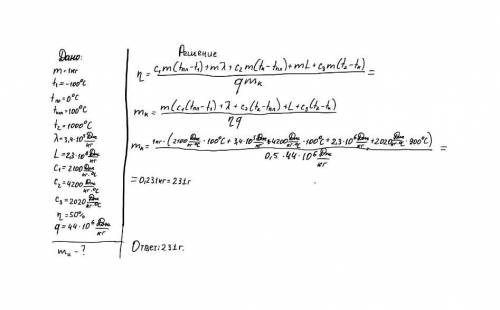 Дано:
m=1кг
t₁=-100°C
tпл=0°C
tкип=100°C
t₂=1000°C
λ=3,4·10⁵ Дж/кг
L=2,3·10⁶ Дж/кг
c₁=2100 Дж/кг·°C
c₂=4200 Дж/кг·°C
c₃=2020 Дж/кг·°C
η=50%
q=44·10⁶ Дж/кг
mк-?
Решение
η = (c₁m(tпл-t₁)+mλ+c₂m(tк-tпл)+mL+c₃m(t₂-tк))/(qmк) =
mк = m(c₁(tпл-t₁)+λ+c₂(tк-tпл)+L+c₃(t₂-tк))/(ηq)
mк = 1кг·(2100 Дж/кг·°C·100°C+3,4·10⁵ Дж/кг+4200 Дж/кг·°C·100°C+2,3·10⁶ Дж/кг+2020 Дж/кг·°C·900°C)/(0,5·44·10⁶ Дж/кг) =
=0,231кг=231г
Ответ: 231г.